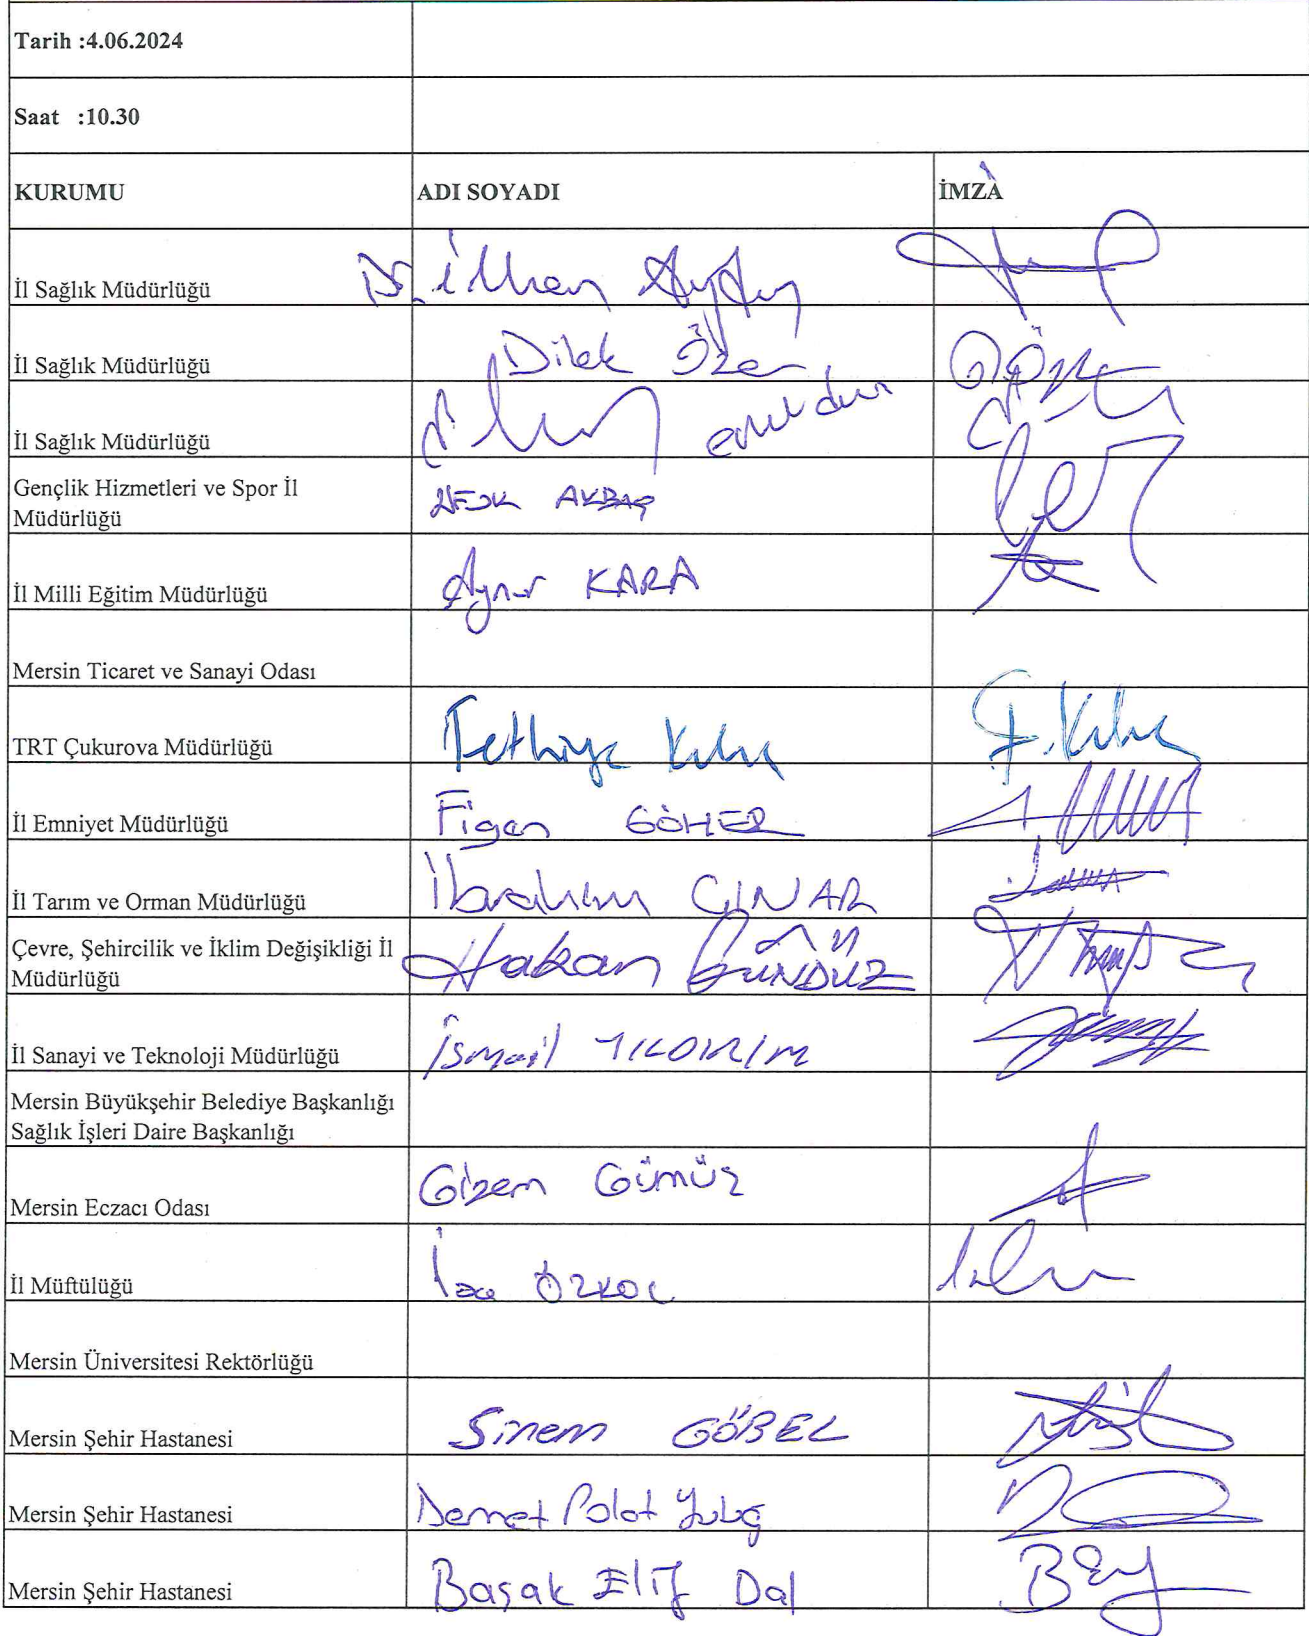 Tarih :4.06.2024
Saat :10.30
KURUMU ADI SOYADI İMZA
İl Sağlık Müdürlüğü Dr. İlhan
İl Sağlık Müdürlüğü Dilek Özer
İl Sağlık Müdürlüğü
Gençlik Hizmetleri ve Spor İl
Müdürlüğü AKBAŞ
İl Milli Eğitim Müdürlüğü Aynur KARA
Mersin Ticaret ve Sanayi Odası
TRT Çukurova Müdürlüğü Fethiye Kılıç F. Kılıç
İl Emniyet Müdürlüğü Figen GÖHER
İl Tarım ve Orman Müdürlüğü İbrahim ÇINAR
Çevre, Şehircilik ve İklim Değişikliği İl
Müdürlüğü Hakan GÜNDÜZ
İl Sanayi ve Teknoloji Müdürlüğü İsmail YILDIRIM
Mersin Büyükşehir Belediye Başkanlığı
Sağlık İşleri Daire Başkanlığı
Mersin Eczacı Odası Gizem Gümüş
İl Müftülüğü ÖZKOÇ
Mersin Üniversitesi Rektörlüğü
Mersin Şehir Hastanesi Sinem GÖBEL
Mersin Şehir Hastanesi Demet Polat
Mersin Şehir Hastanesi Başak Elif Dal